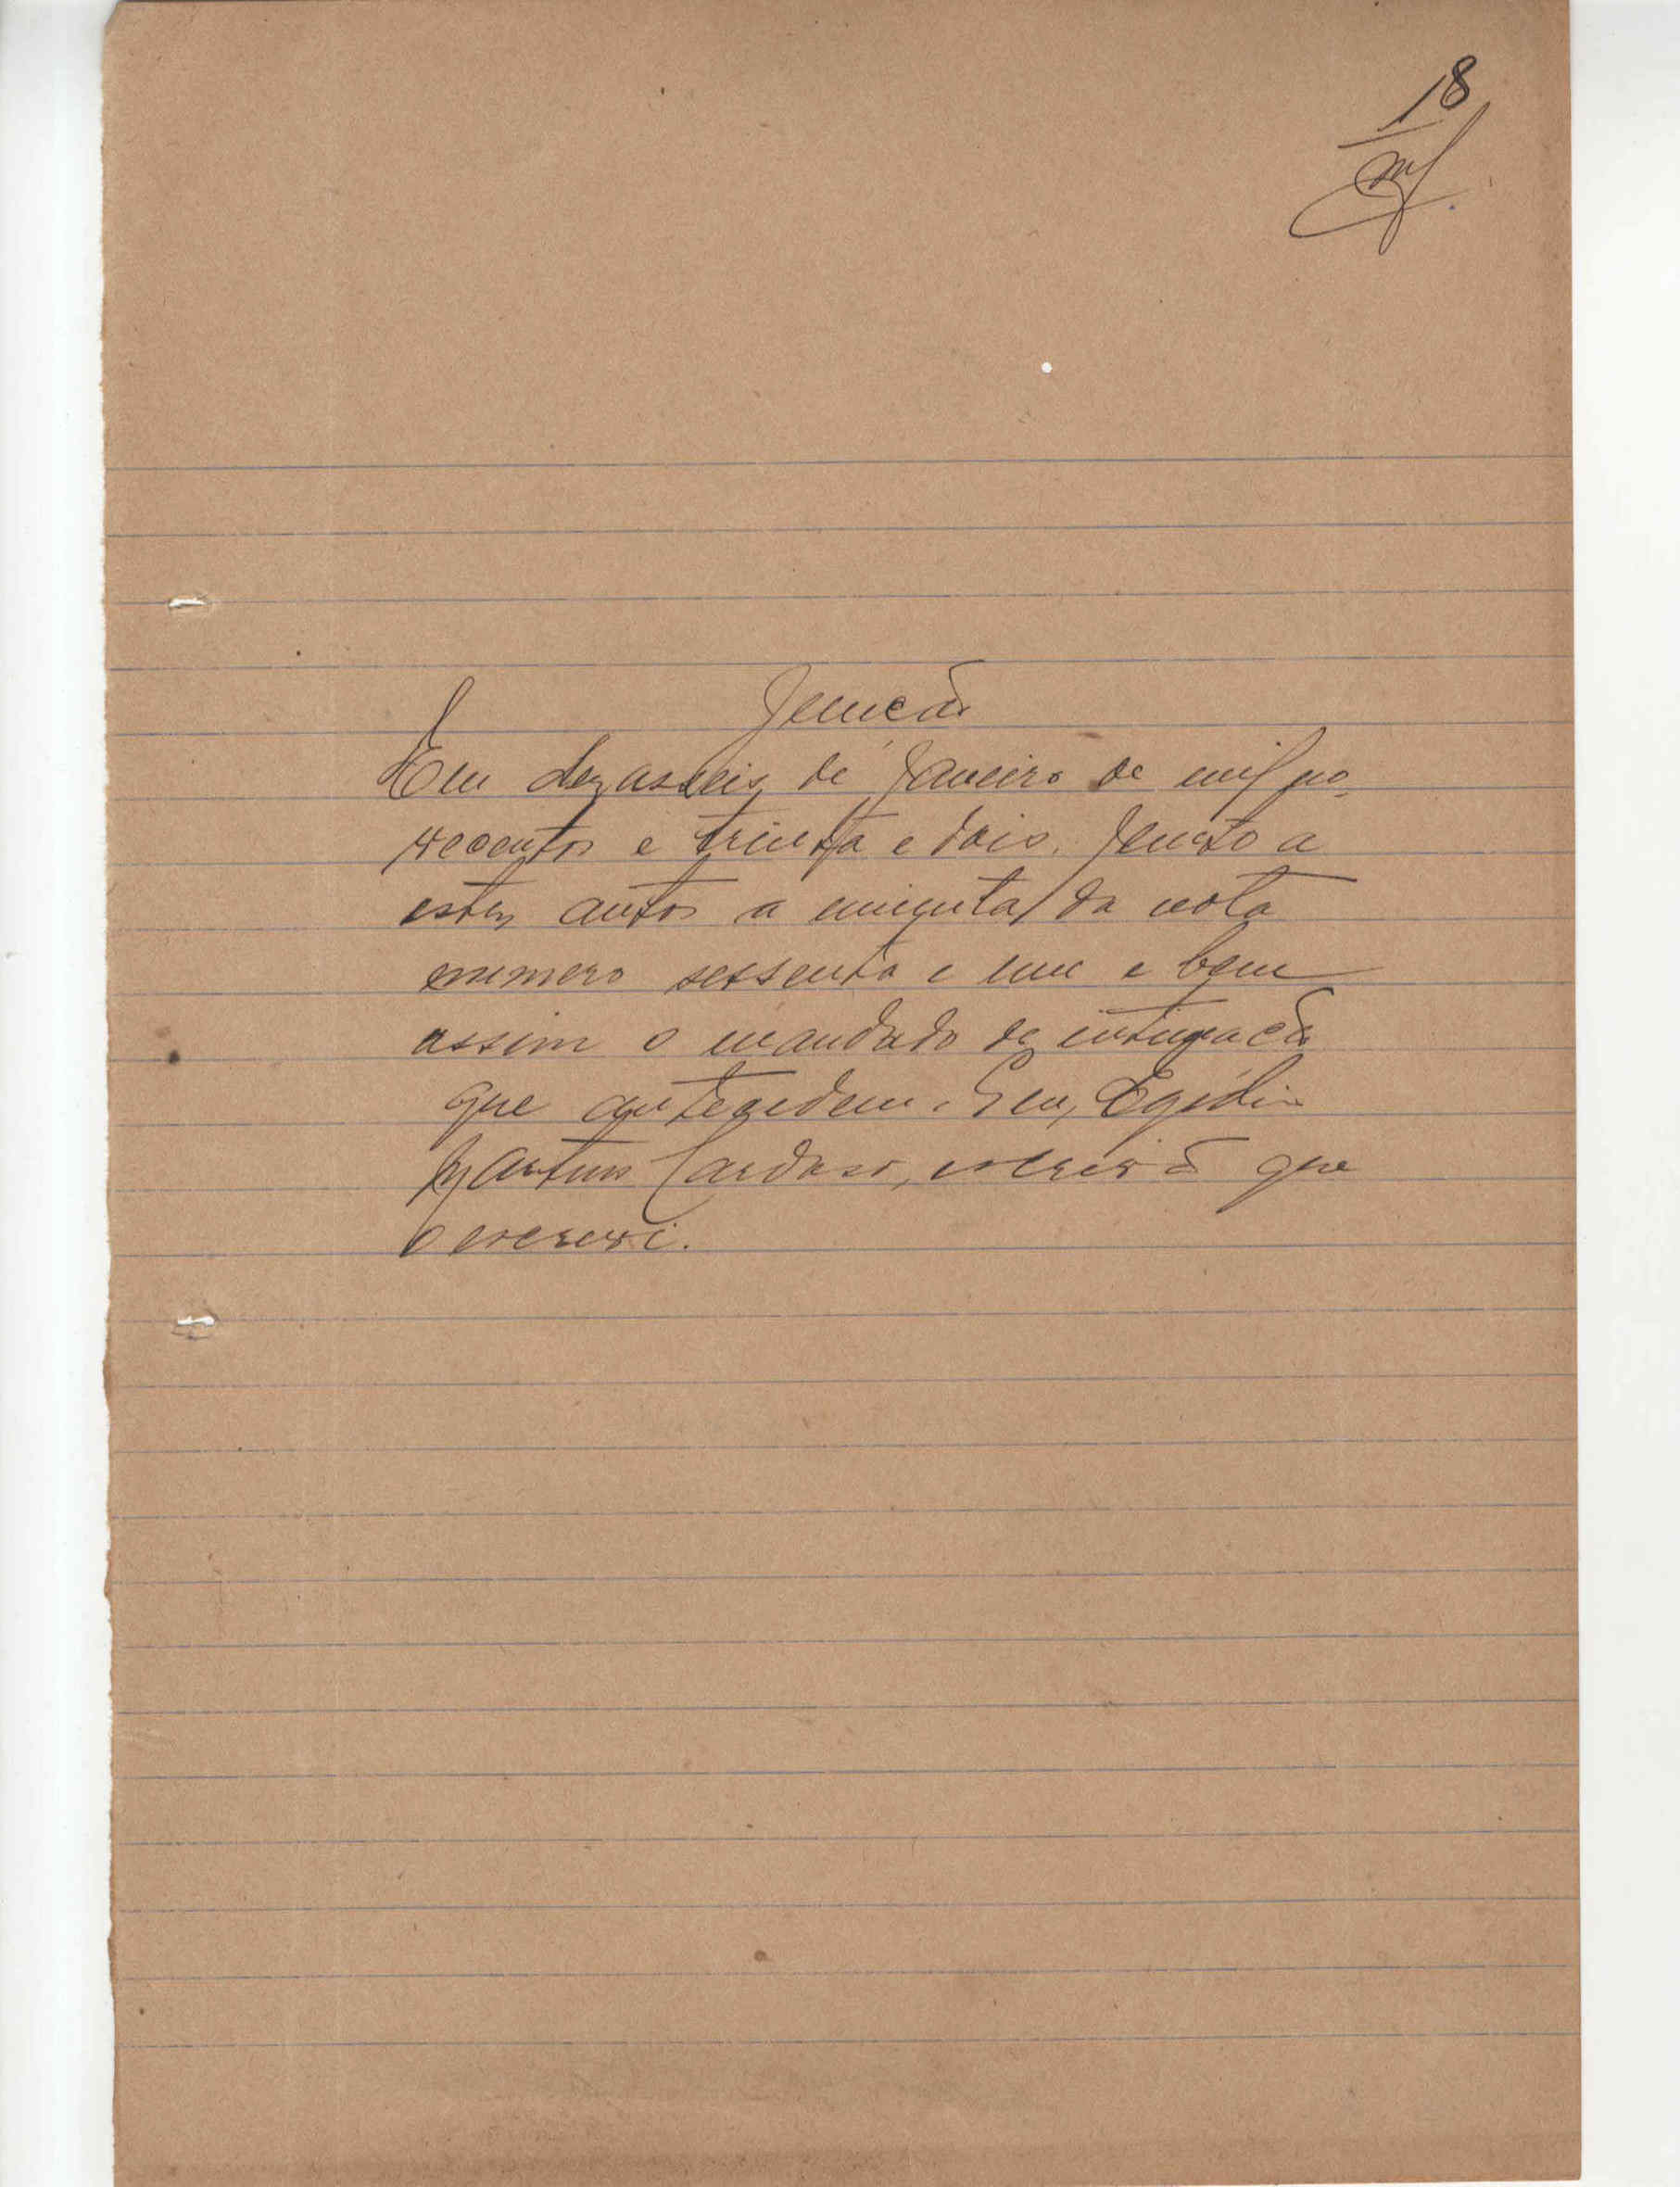 18
Junção
Em dezasseis de Janeiro de mil no-
vecentos e trinta e dois. Junto a
estes autos a minuta da nota
numero sessenta e um e bem
assim o mandado de intimação
que antecedem. Eu, Egidio
Martins Cardoso, escrivão que
o escrevi.